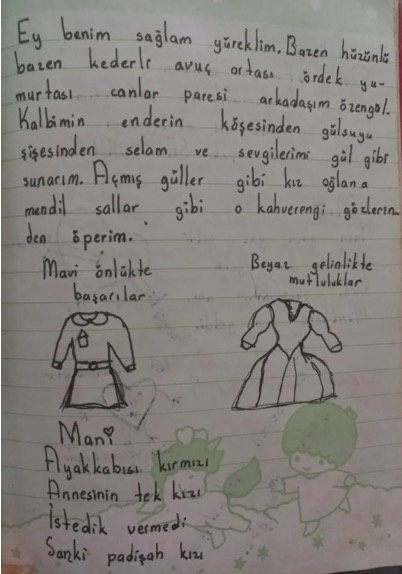 Ey benim sağlam yüreklim. Bazen hüzünlü
bazen kederli avuç ortası ördek yu-
murtası canlar paresi arkadaşım özengül.
Kalbimin enderin köşesinden gülsuyu
şişesinden selam ve sevgilerimi gül gibi
sunarım. Açmış güller gibi kız oğlana
mendil sallar gibi o kahverengi gözlerin-
den öperim.
Mavi önlükte
başarılar
Beyaz gelinlikte
mutluluklar
Mani
Ayakkabısı kırmızı
Annesinin tek kızı
İstedik vermedi
Sanki padişah kızı